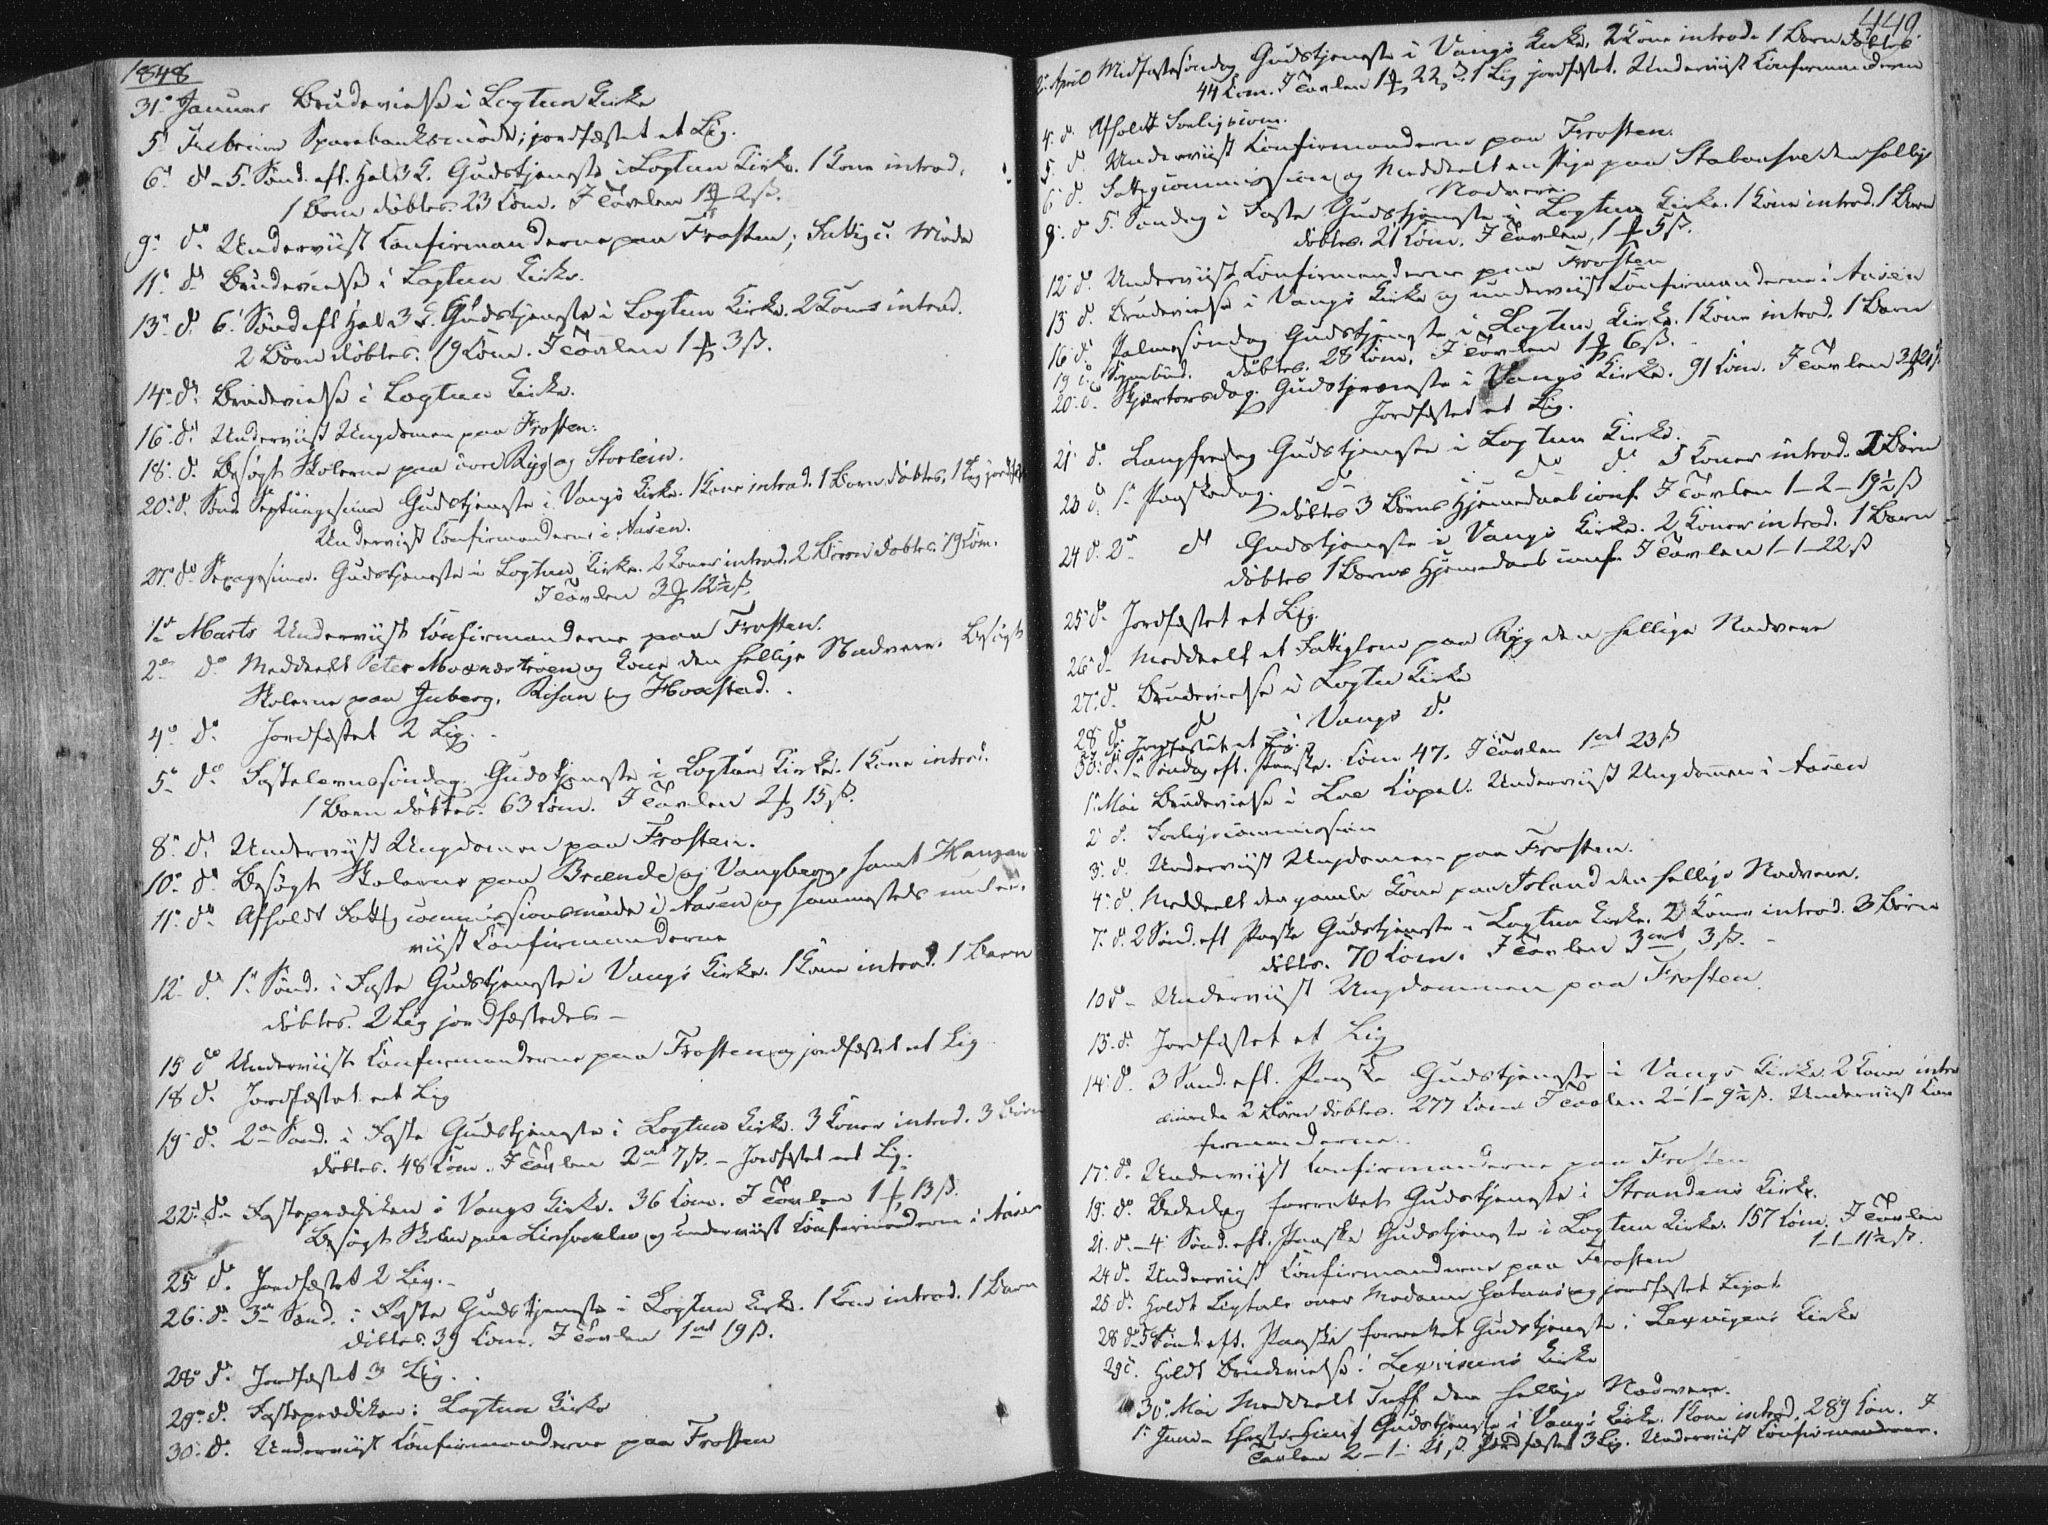 1848
31te Januar Brudevielse i Logtun Kirke
5te Februar Sparebanksmøde; jordfæstet et Lig.
6te do 5. Sønd. eft. Hel. 3 K. Gudstjeneste i Logtun Kirke. 1 Kone introd.
1 Barn døbtes. 23 Com. I Tavlen 1 2 ß.
9de do Underviist Confirmanderne paa Frosten; Fattig c. Møde
11te do Brudevielse i Logtun Kirke.
13de do 6te Sønd. eft. Hel. 3 K. Gudstjeneste i Logtun Kirke. 2 Koner introd.
2 Børn døbtes. 19 Com. I Tavlen 1 3 ß.
14de do Brudevielse i Logtun Kirke.
16de do Underviist Ungdomen paa Frosten.
18de do Besøgt Skolerne paa Ryg og Storlein.
20de do Sønd. Septuagesima Gudstjeneste i Vangs Kirke. 1 Kone introd. 1 Barn døbtes. 1 Lig jordf.
Underviist Confirmanderne i Aasen.
27de do Sexagesima. Gudstjeneste i Logtun Kirke. 2 Koner introd. 2 Børn døbtes. 19 Com.
I Tavlen 3 12½ ß.
1ste Marts Underviist Confirmanderne paa Frosten.
2den do Meddeelt Peter og Kone den hellige Nadvere. Besøgt
Skolerne paa Juberg, Risan og Hoxstad.
4de do Jordfæstet 2 Lig.
5te do Fastelavnssøndag. Gudstjeneste i Logtun Kirke. 1 Kone introd.
1 Barn døbtes. 63 Com. I Tavlen 2 15 ß.
8de do Underviist Ungdomen paa Frosten.
10de do Besøgt Skolerne paa Brænde og Vangberg, samt
11te do Afholdt Fattigcommissionsmøde i Aasen og sammesteds under-
viist Confirmanderne
12te do 1ste Sønd. i Faste Gudstjeneste i Vangs Kirke. 1 Kone introd. 1 Barn
døbtes. 2 Lig jordfæstedes –
15 do Underviist Confirmanderne paa Frosten og jordfæstet et Lig
18 do Jordfæstet et Lig
19 do 2den Sønd. i Faste Gudstjeneste i Logtun Kirke. 3 Koner introd. 3 Børn
døbtes. 48 Com. I Tavlen 2 ort 7 ß. – Jordfæstet et Lig.
22de do Fasteprædiken i Vangs Kirke. 36 Com. I Tavlen 1 13 ß.
Besøgt Skolen paa og underviist Confirmanderne i Aasen
25 do Jordfæstet 2 Lig. –
26 do 3die Sønd. i Faste Gudstjeneste i Logtun Kirke. 1 Kone introd. 1 Barn
døbtes. 39 Com. I Tavlen 1 ort 19 ß.
28de do Jordfæstet 3 Lig.
29de do Fasteprædiken i Logtun Kirke
30te do Underviist Confirmanderne paa Frosten
449.
2den April Midfastesøndag Gudstjeneste i Vangs Kirke. 2 Koner introd. 1 Barn døbtes
44 Com. I Tavlen 1 22 ß. 1 Lig jordfæstet. Underviist Confirmanderne
4. do Afholdt
5. do Underviist Confirmanderne paa Frosten.
6 do Fattigcommission og Meddeelt en Pige paa den hellige
Nadvere.
9. do 5te Søndag i Faste Gudstjeneste i Logtun Kirke. 1 Kone introd. 1 Barn
døbtes. 21 Com. I Tavlen 1 5 ß.
12te do Underviist Confirmanderne paa Frosten
13 do Brudevielse i Vangs Kirke og underviist Confirmanderne i Aasen
16 do Palmesøndag Gudstjeneste i Logtun Kirke. 1 Kone introd. 1 Barn
døbtes. 28 Com. I Tavlen 1 6 ß.
19 do
20 do Skjærtorsdag. Gudstjeneste i Vangs Kirke. 91 Com. I Tavlen 3 21 ß
Jordfæstet et Lig.
21 do Langfredag Gudstjeneste i Logtun Kirke.
23 do 1ste Paaskedag. do do do 5 Koner introd. 2 Børn
døbtes 3 Børns Hjemmedaab conf. I Tavlen 1–2–19½ ß
24 do 2den do Gudstjeneste i Vangs Kirke. 2 Koner introd. 1 Barn
døbtes 1 Barns Hjemmedaab conf. I Tavlen 1–1–22 ß
25 do Jordfæstet et Lig.
26 do Meddeelt et Fattiglem paa Ryg den hellige Nadvere
27 do Brudevielse i Logtu Kirke
28 do do i Vangs do
do Jordfæstet et Lig.
30 do 1ste Søndag eft. Paaske. Com 47. I Tavlen 1 ort 23 ß
1ste Mai Brudevielse i Loe Capel. Underviist Ungdommen i Aasen
2 do Fattigcommission
3 do Underviist Ungdomen paa Frosten.
4 do Meddeelt den gamle Kone paa den hellige Nadvere.
7 do 2 Sønd. eft Paaske Gudstjeneste i Logtun Kirke. 2 Koner introd. 3 Børn
døbtes. 70 Com. I Tavlen 3 ort 3 ß. –
10 do – Underviist Ungdommen paa Frosten.
13 do Jordfæstet et Lig
14 do 3 Sønd. eft. Paaske Gudstjeneste i Vangs Kirke. 2 Koner intro
ducerede 2 Børn døbtes. 277 Com. I Tavlen 2–1–9½ ß. Underviist Con
firmanderne.
17 do Underviist Confirmanderne paa Frosten
19 do Bededag forrettet Gudstjeneste i Strandens Kirke.
21 do – 4 Sønd. eft. Paaske Gudstjeneste i Logtun Kirke. 157 Com. I Tavlen
1–1–11½ ß.
24 do Underviist Confirmanderne paa Frosten
25 do Holdt Ligtale over Madame og jordfæstet Liget
28 do 5 Sønd. eft. Paaske forrettet Gudstjeneste i Lexvigens Kirke
29 do Holdt Brudevielse i Lexvigens Kirke
30te Mai Meddeelt den hellige Nadvere.
1ste Juni – Christi Himf. Gudstjeneste i Vangs Kirke. 1 Kone introd. 289 Com. I
Tavlen 2–1–21 ß. Jordfæstet 3 Lig. Underviist Confirmanderne.